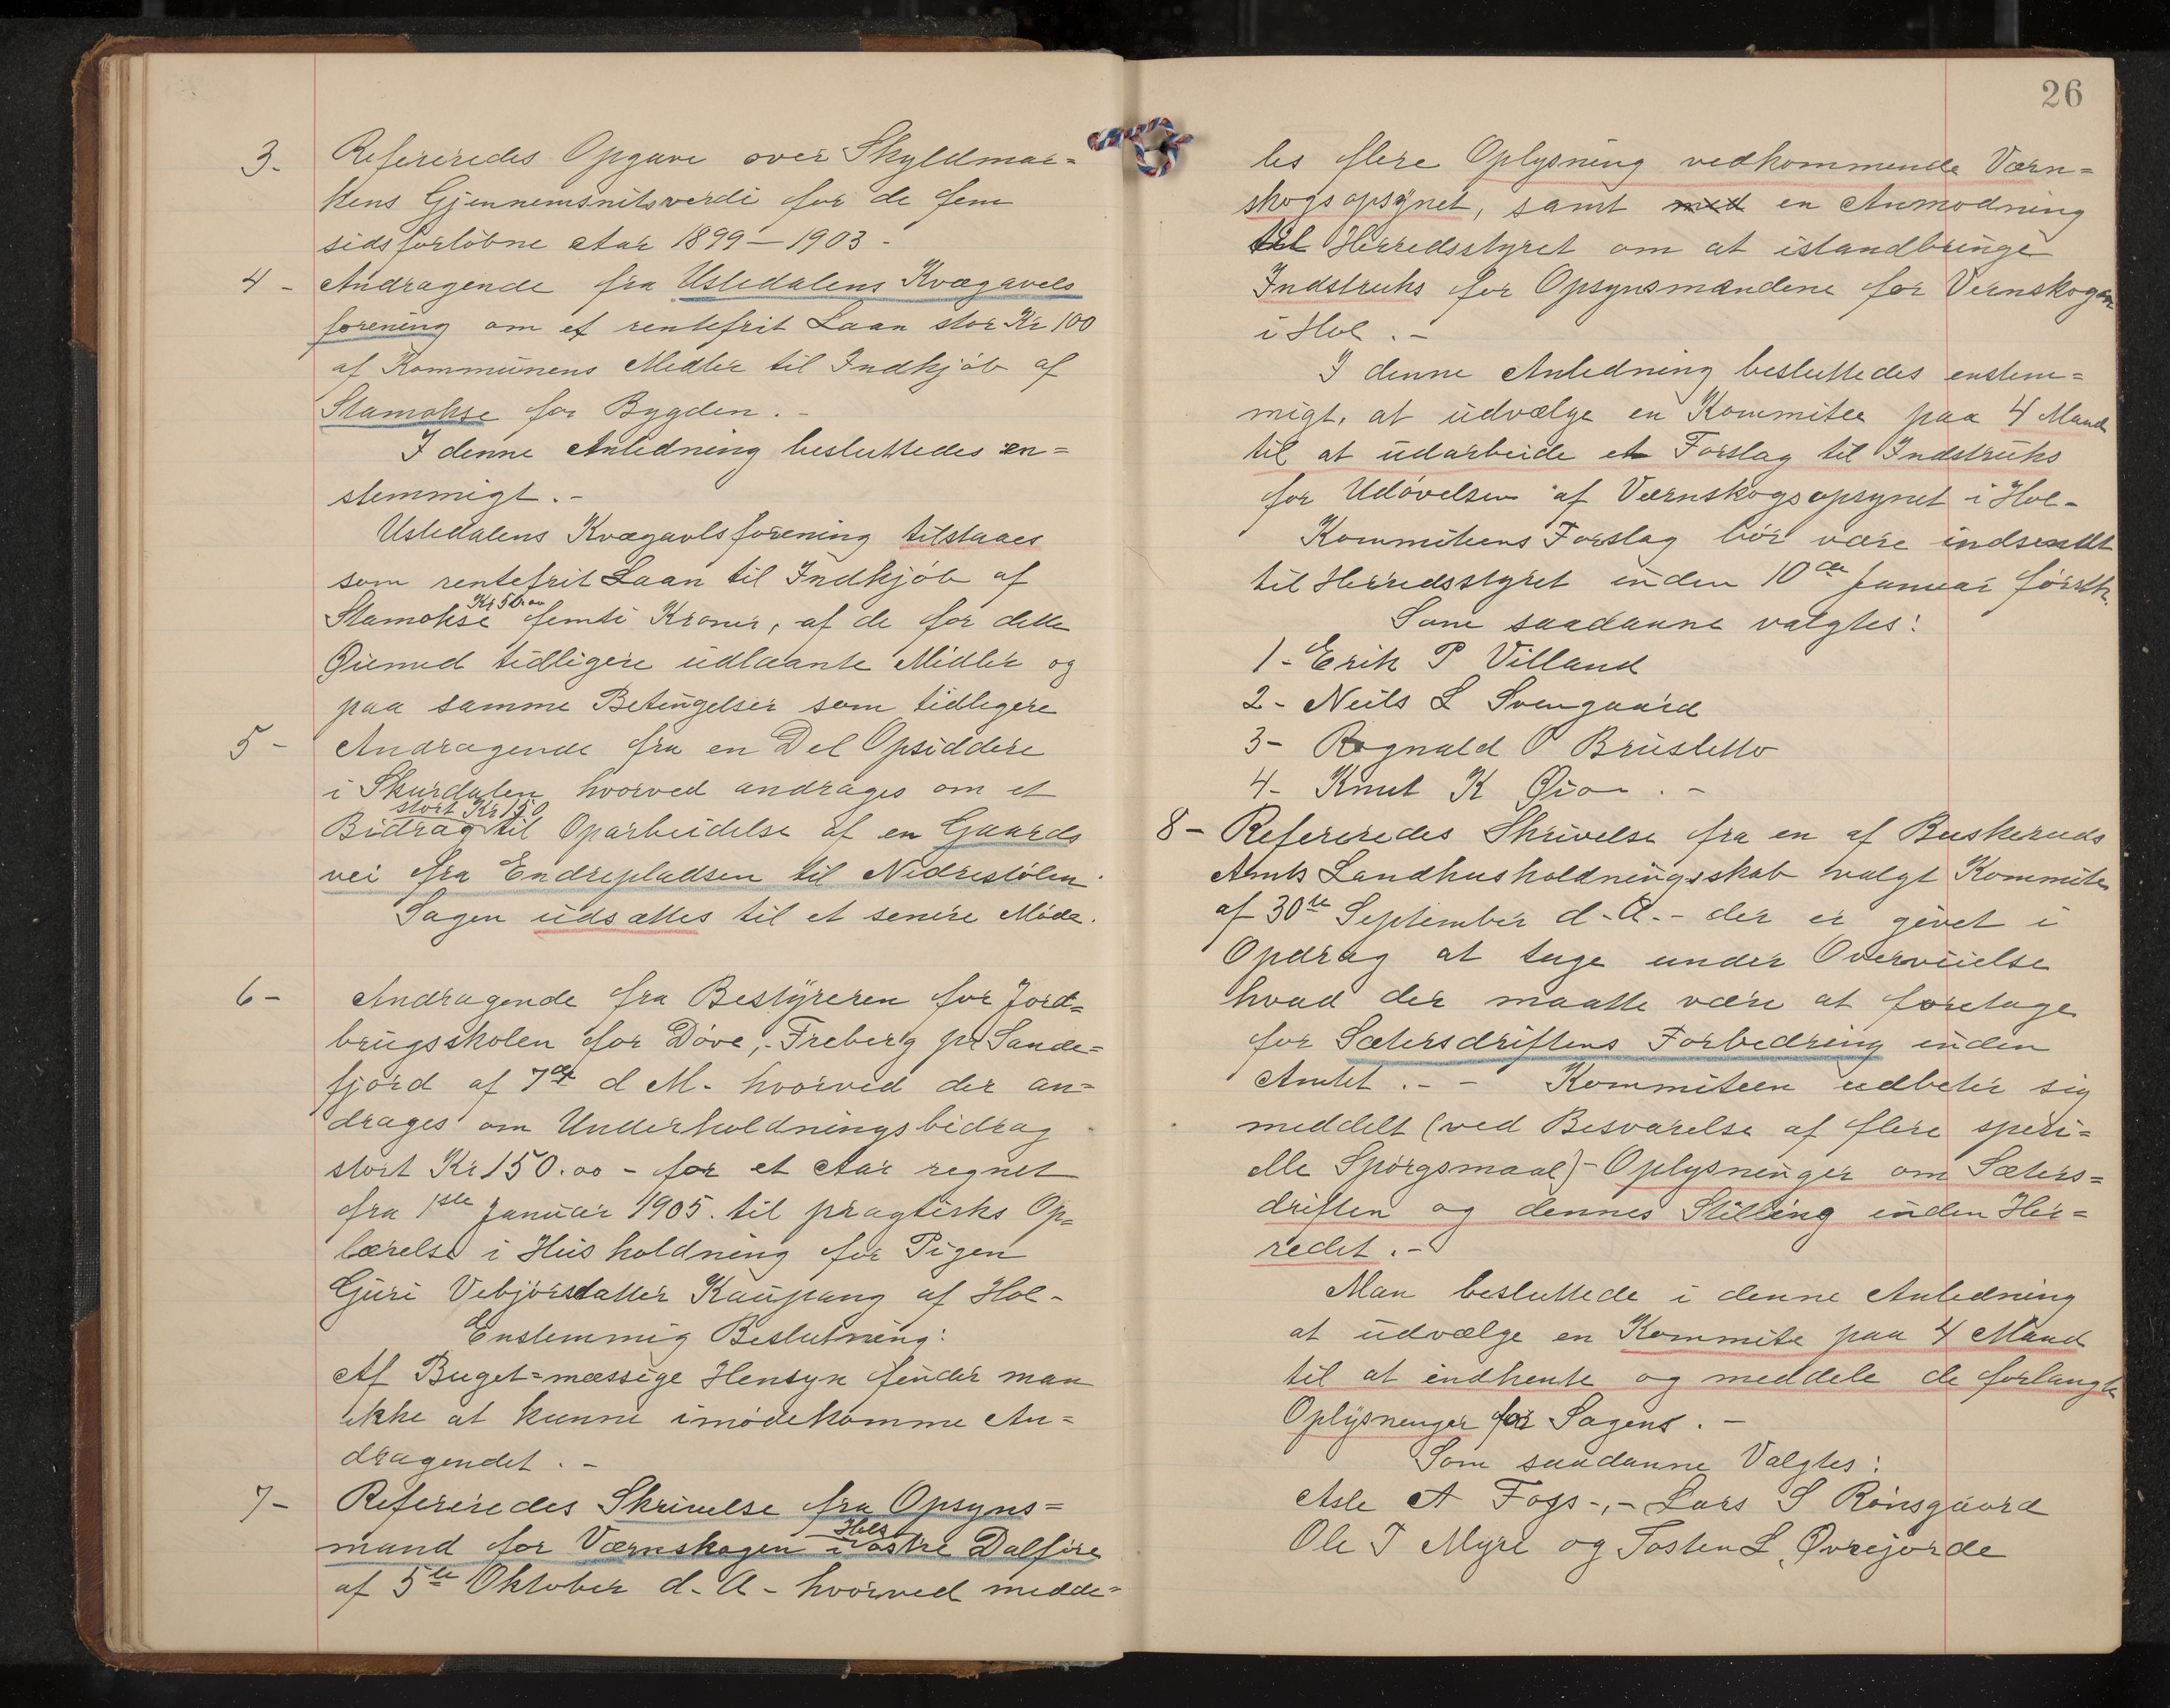 3- Refereredes Opgave over Skyldmar=
kens Gjennemsnitsverdi for de fem
sidsforløbne Aar 1899 – 1903 -
4 - Andragende fra Ustedalens Kvægavels
forening om et rentefrit Laan stor Kr 100
af Kommunens Midler til Indkjøb af
Stamokse for Bygden. -
I denne Anledning besluttedes en=
stemmigt. -
Ustedalens Kvægavlsforening tilstaaes
som rentefrit Laan til Indkjøb af
Kr 50.00
Stamokse femti Kroner, af de for dette
Øiemed tidligere udlaante Midler og
paa samme Betingelser som tidligere
5 - Andragende fra en Del Opsiddere
i Skurdalen hvorved andrages om et
stort Kr 150
Bidrag til Oparbeidelse af en Gaards
vei fra Endrepladsen til Nedrestølen.
Sagen udsættes til et senere Møde.
6 - Andragende fra Bestyreren for Jord=
brugsskolen for Døve, - Freberg pr Sande=
fjord af 7de d M. hvorved der an=
drages om Underholdningsbidrag
stort Kr 150.00 - for et Aar regnet
fra 1ste Januar 1905. til pragtisks Op=
lærelse i Husholdning for Pigen
Guri Vebjørsdatter Kaupang af Hol -
Enstemmig Beslutning:
Af Buget=mæssige Hensyn finder man
ikke at kunne imødekomme An=
dragendet. -
7 - Refereredes Skrivelse fra Opsyns=
Hols
mand for Værnskogen i østre Dalføre
af 5te Oktober d. A - hvorved medde=
26
les flere Oplysning vedkommende Værn=
skogsopsynet, samt med en Anmodning
til Herredsstyret om at istandbringe
Indstruks for Opsynsmændene for Vernskogen
i Hol. -
I denne Anledning besluttedes enstem=
migt, at udvælge en Kommitee paa 4 Mand
til at udarbeide et Forslag til Indstruks
for Udøvelsen af Værnskogsopsynet i Hol -
Kommiteens Forslag bør være indsendt
til Herredsstyret inden 10de Januar førstk.
Som saadanne valgtes:
1 - Erik P Villand
2 - Neils L Svengaard
3 - Rognald O Brusletto
4 - Knut K Øio. -
8 - Refereredes Skrivelse fra en af Buskeruds
Amts Landhusholdningsskab valgt Kommite
af 30te September d. A. - der er givet i
Opdrag at tage under Overveielse
hvad der maatte være at foretage
for Sætersdriftens Forbedring inden
Amtet. - - Kommiteen udbeter sig
meddelt (ved Besvarelse af flere spesi=
elle Spørgsmaal) - Oplysninger om Sæters=
driften og dennes Stilling inden Her=
redet. -
Man besluttede i denne Anledning
at udvælge en Kommite paa 4 Mand
til at indhente og meddele de forlangte
Oplysninger for Sagens. -
Som saadanne Valgtes:
Asle A Fogs -, - Lars S Rønsgaard
Ole T Myre og Tosten L Øvrejorde